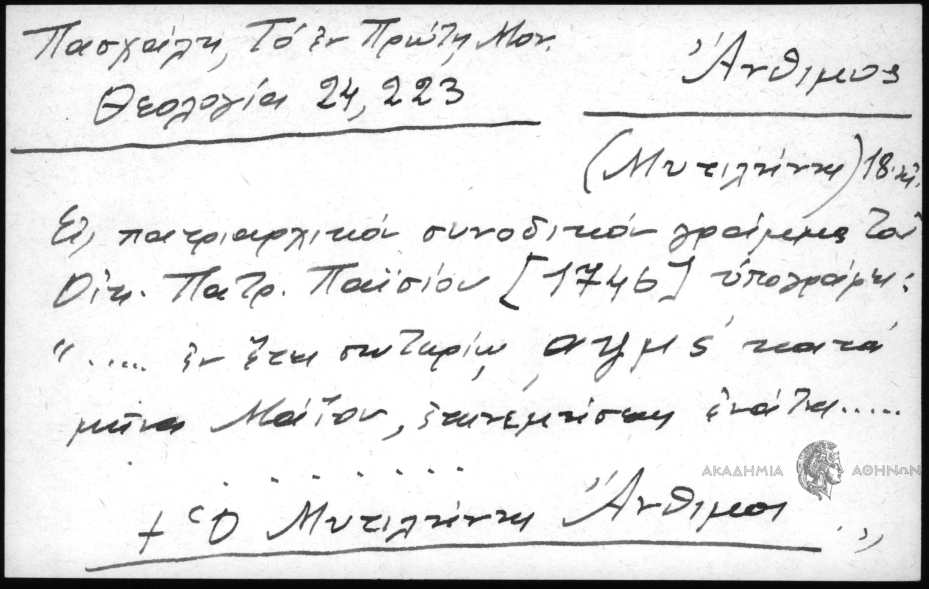 Πασχάλη, Τό ἐν Πρώτῃ Μον.
Θεολογία 24, 223
Ἄνθιμος
(Μυτιλήνης) 18 αἰ.
Εἰς πατριαρχικόν συνοδικόν γράμμα τοῦ
Οἰκ. Πατρ. Παϊσίου [1746] ὑπογράφει:
“..... ἐν ἔτει σωτηρίῳ αψμς΄ κατά
μῆνα Μάϊον, ἐπινεμήσεως ἐνάτης.....
. . . . . . . .
+ Ὁ Μυτιλήνης Ἄνθιμος . . ”
ΑΚΑΔΗΜΙΑ ΑΘΗΝΩΝ